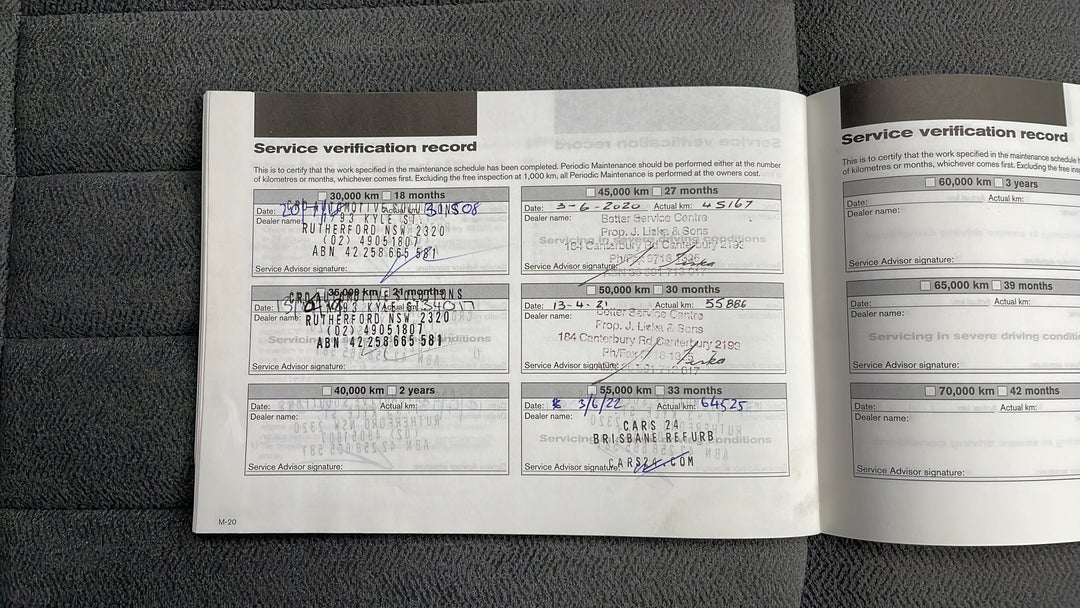 Service verification record
This is to certify that the work specified in the maintenance schedule has been completed. Periodic Maintenance should be performed either at the number
of kilometres or months, whichever comes first. Excluding the free inspection at 1,000 km, all Periodic Maintenance is performed at the owners cost.
30,000 km 18 months
Date: Actual km: 301508
Dealer name: 793 KYLE ST.
RUTHERFORD NSW 2320
(02) 49051807
ABN 42 258 665 581
Service Advisor signature:
35,000 km 21 months
CRD AUTOMOTIVE SOLUTIONS
Date: Actual km: 34017
Dealer name: 793 KYLE ST.
RUTHERFORD NSW 2320
(02) 49051807
ABN 42 258 665 581
Service Advisor signature:
40,000 km 2 years
Date: Actual km:
Dealer name:
Service Advisor signature:
M-20
45,000 km 27 months
Date: 3-6-2020 Actual km: 45167
Dealer name: Better Service Centre
Prop. J. Lizka & Sons
184 Canterbury Rd Canterbury 2193
Servicing in severe driving conditions
Service Advisor signature:
50,000 km 30 months
Date: 13-4-21 Actual km: 55886
Dealer name: Better Service Centre
Prop. J. Lizka & Sons
184 Canterbury Rd Canterbury 2193
Service Advisor signature:
55,000 km 33 months
Date: 3/6/22 Actual km: 64525
Dealer name:
CARS 24
BRISBANE REFURB
CARS24.COM
Service Advisor signature:
Service verification record
This is to certify that the work specified in the maintenance schedule
of kilometres or months, whichever comes first. Excluding the free
60,000 km 3 years
Date: Actual km:
Dealer name:
Service Advisor signature:
65,000 km 39 months
Date: Actual km:
Dealer name:
Servicing in severe driving
Service Advisor signature:
70,000 km 42 months
Date: Actual km:
Dealer name:
Service Advisor signature: